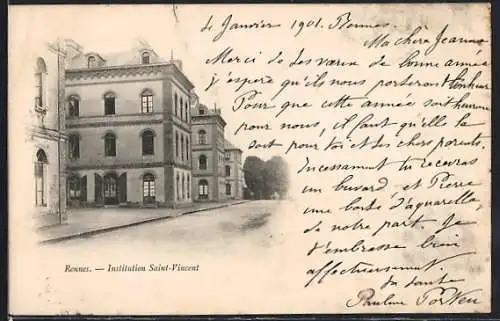 4 Janvier 1901. Rennes.
Ma chère Jeanne
Merci de tes vœux de bonne année
j'espère qu'ils nous porteront bonheur
Pour que cette année soit heureuse
pour nous, il faut qu'elle la
soit pour toi et tes chers parents.
Incessament tu recevras
un buvard et Pierre
une boite d'aquarelle
de notre part. Je
t'embrasse bien
affectueusement.
ta tante
Pauline
Rennes. — Institution Saint-Vincent